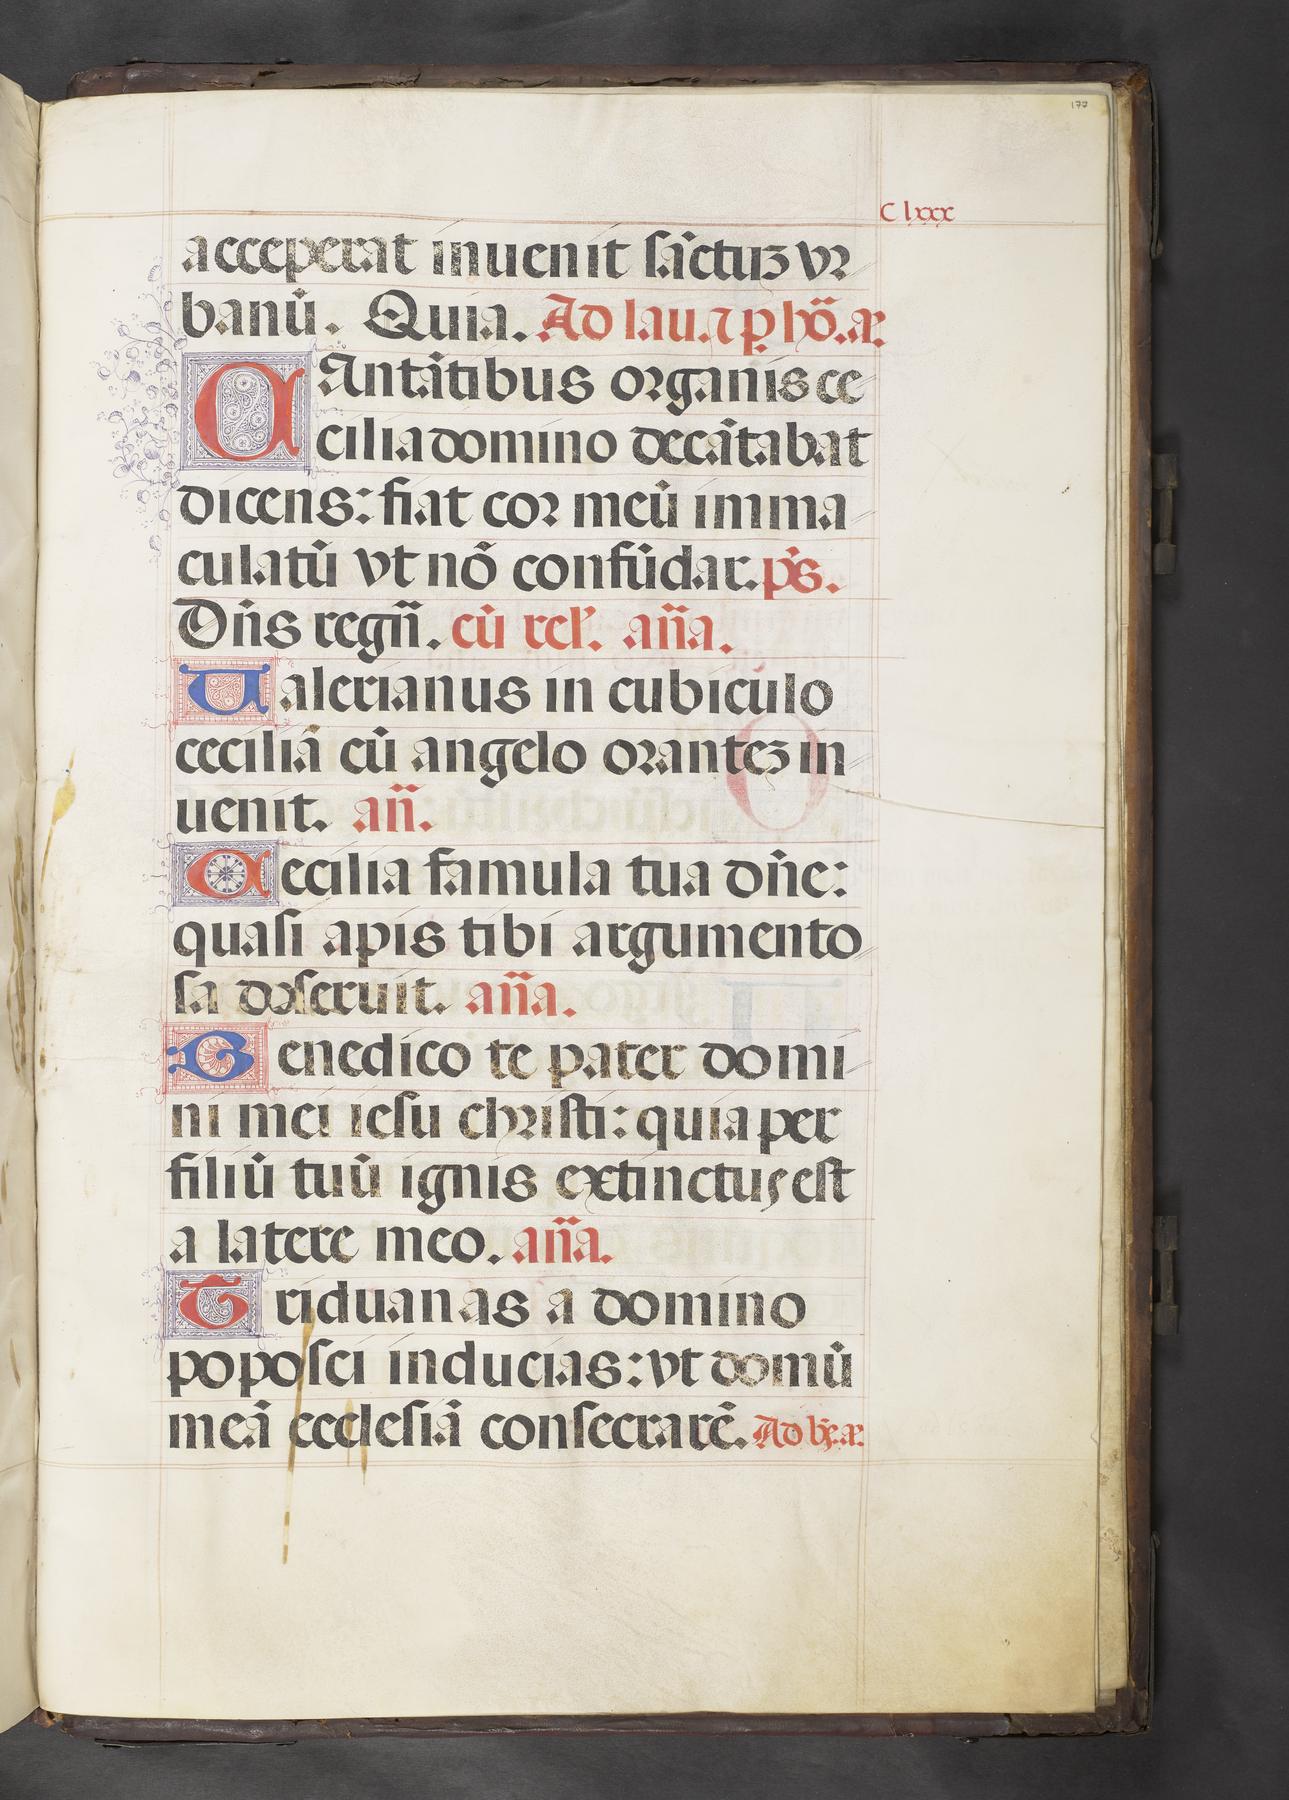 177
C lxxx
acceperat inuenit sãctuz vr
banũ. Quia. Ad lau. ⁊ p hõ. añ.
CAntãtibus organis ce
cilia domino decãtabat
dicens: fiat cor meũ imma
culatũ vt nõ confũdar. ps.
Dñs regñ. cũ rel'. aña.
Ualerianus in cubiculo
ceciliã cũ angelo orantez in
uenit. añ.
Cecilia famula tua dñe:
quasi apis tibi argumento
sa deseruit. aña.
Benedico te pater domi
ni mei iesu christi: quia per
filiũ tuũ ignis extinctus est
a latere meo. aña.
Triduanas a domino
poposci inducias: vt domũ
meã ecclesiã consecrarẽ. Ad